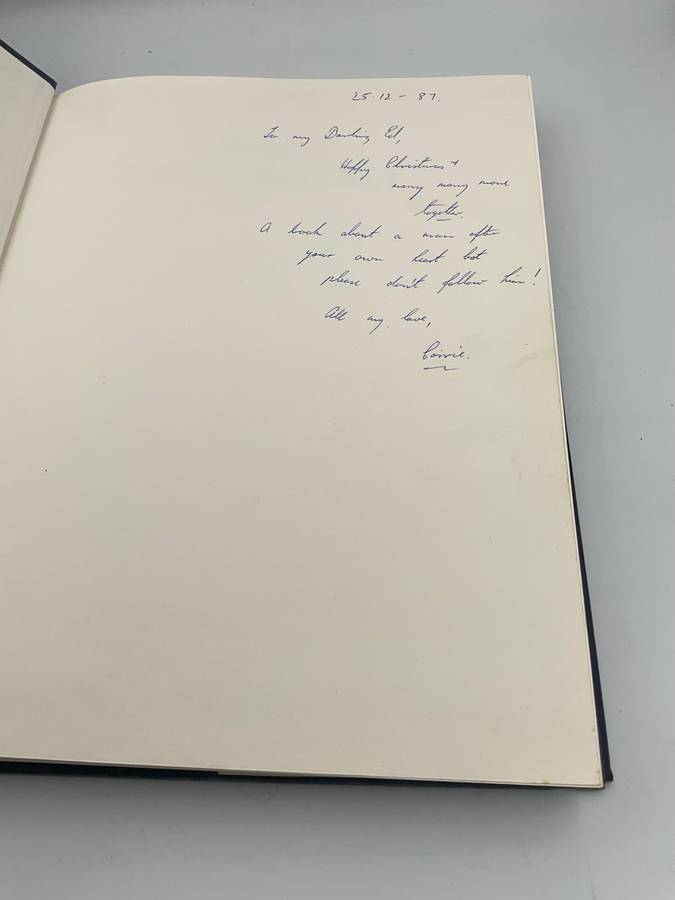 25.12 - 87.
To my Darling Ed,
Happy Christmas +
many many more
together.
A book about a man after
your own heart but
please don't follow him!
All my love,